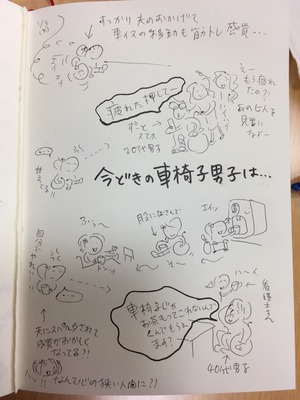 1/3
すっかり夫のおかげで
車イスの移動も筋トレ感覚…
エイ
エイ
疲れた押してー
えー
もう疲れ
たの?!
あの七人を
見習い
なよー
ずーっと
スマホ
20代男子
…
今どきの車椅子男子は…
ふぅー
エイッ
自分で
やれぃー!!
…
はーく
看護士さん
車椅子じゃ
お茶もってこれないんで
くんでもらえ
ます?
40代男子
夫にスパルタされて
感覚がおかしく
なってる?!
なんて心の狭い人間に?!